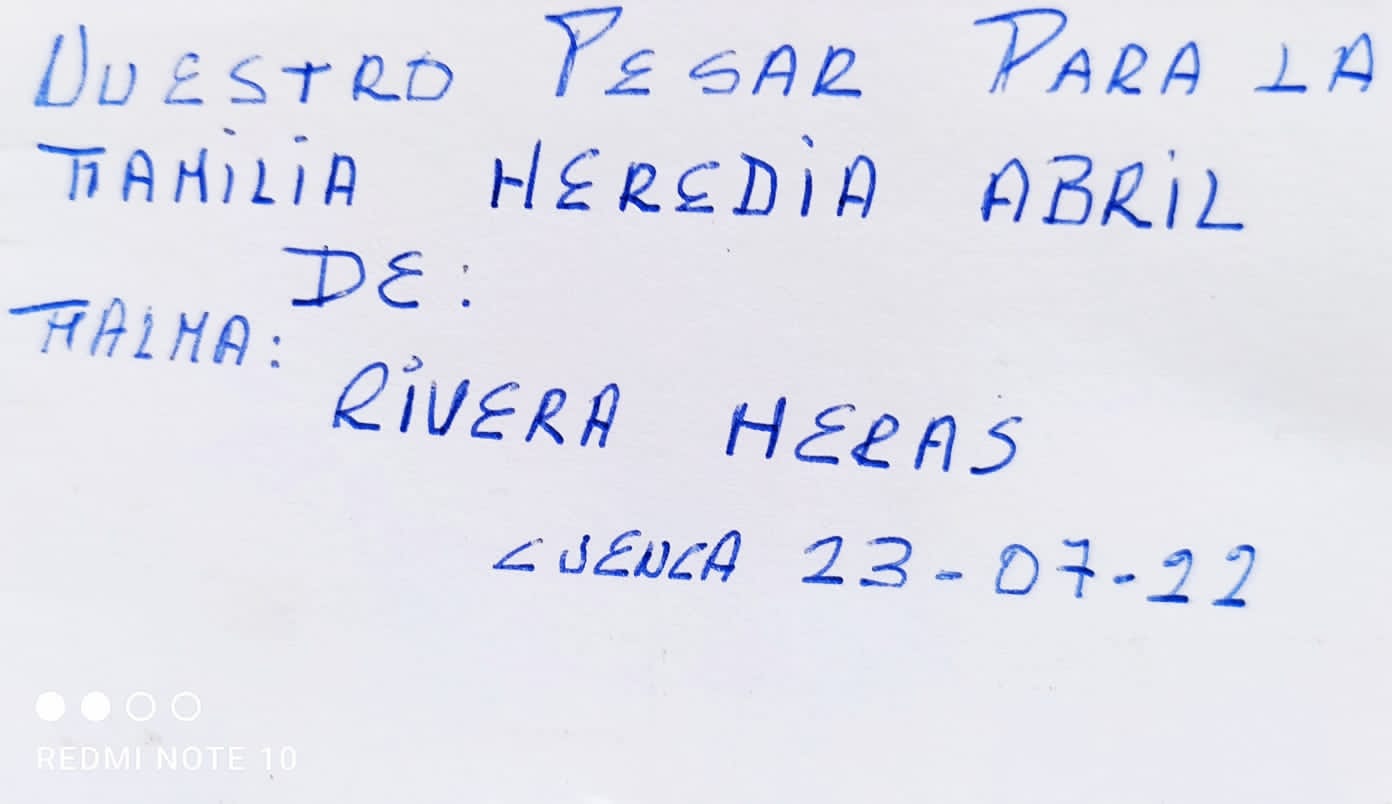 NUESTRO PESAR PARA LA
FAMILIA HEREDIA ABRIL
DE:
RIVERA HERAS
CUENCA 23-07-22
REDMI NOTE 10